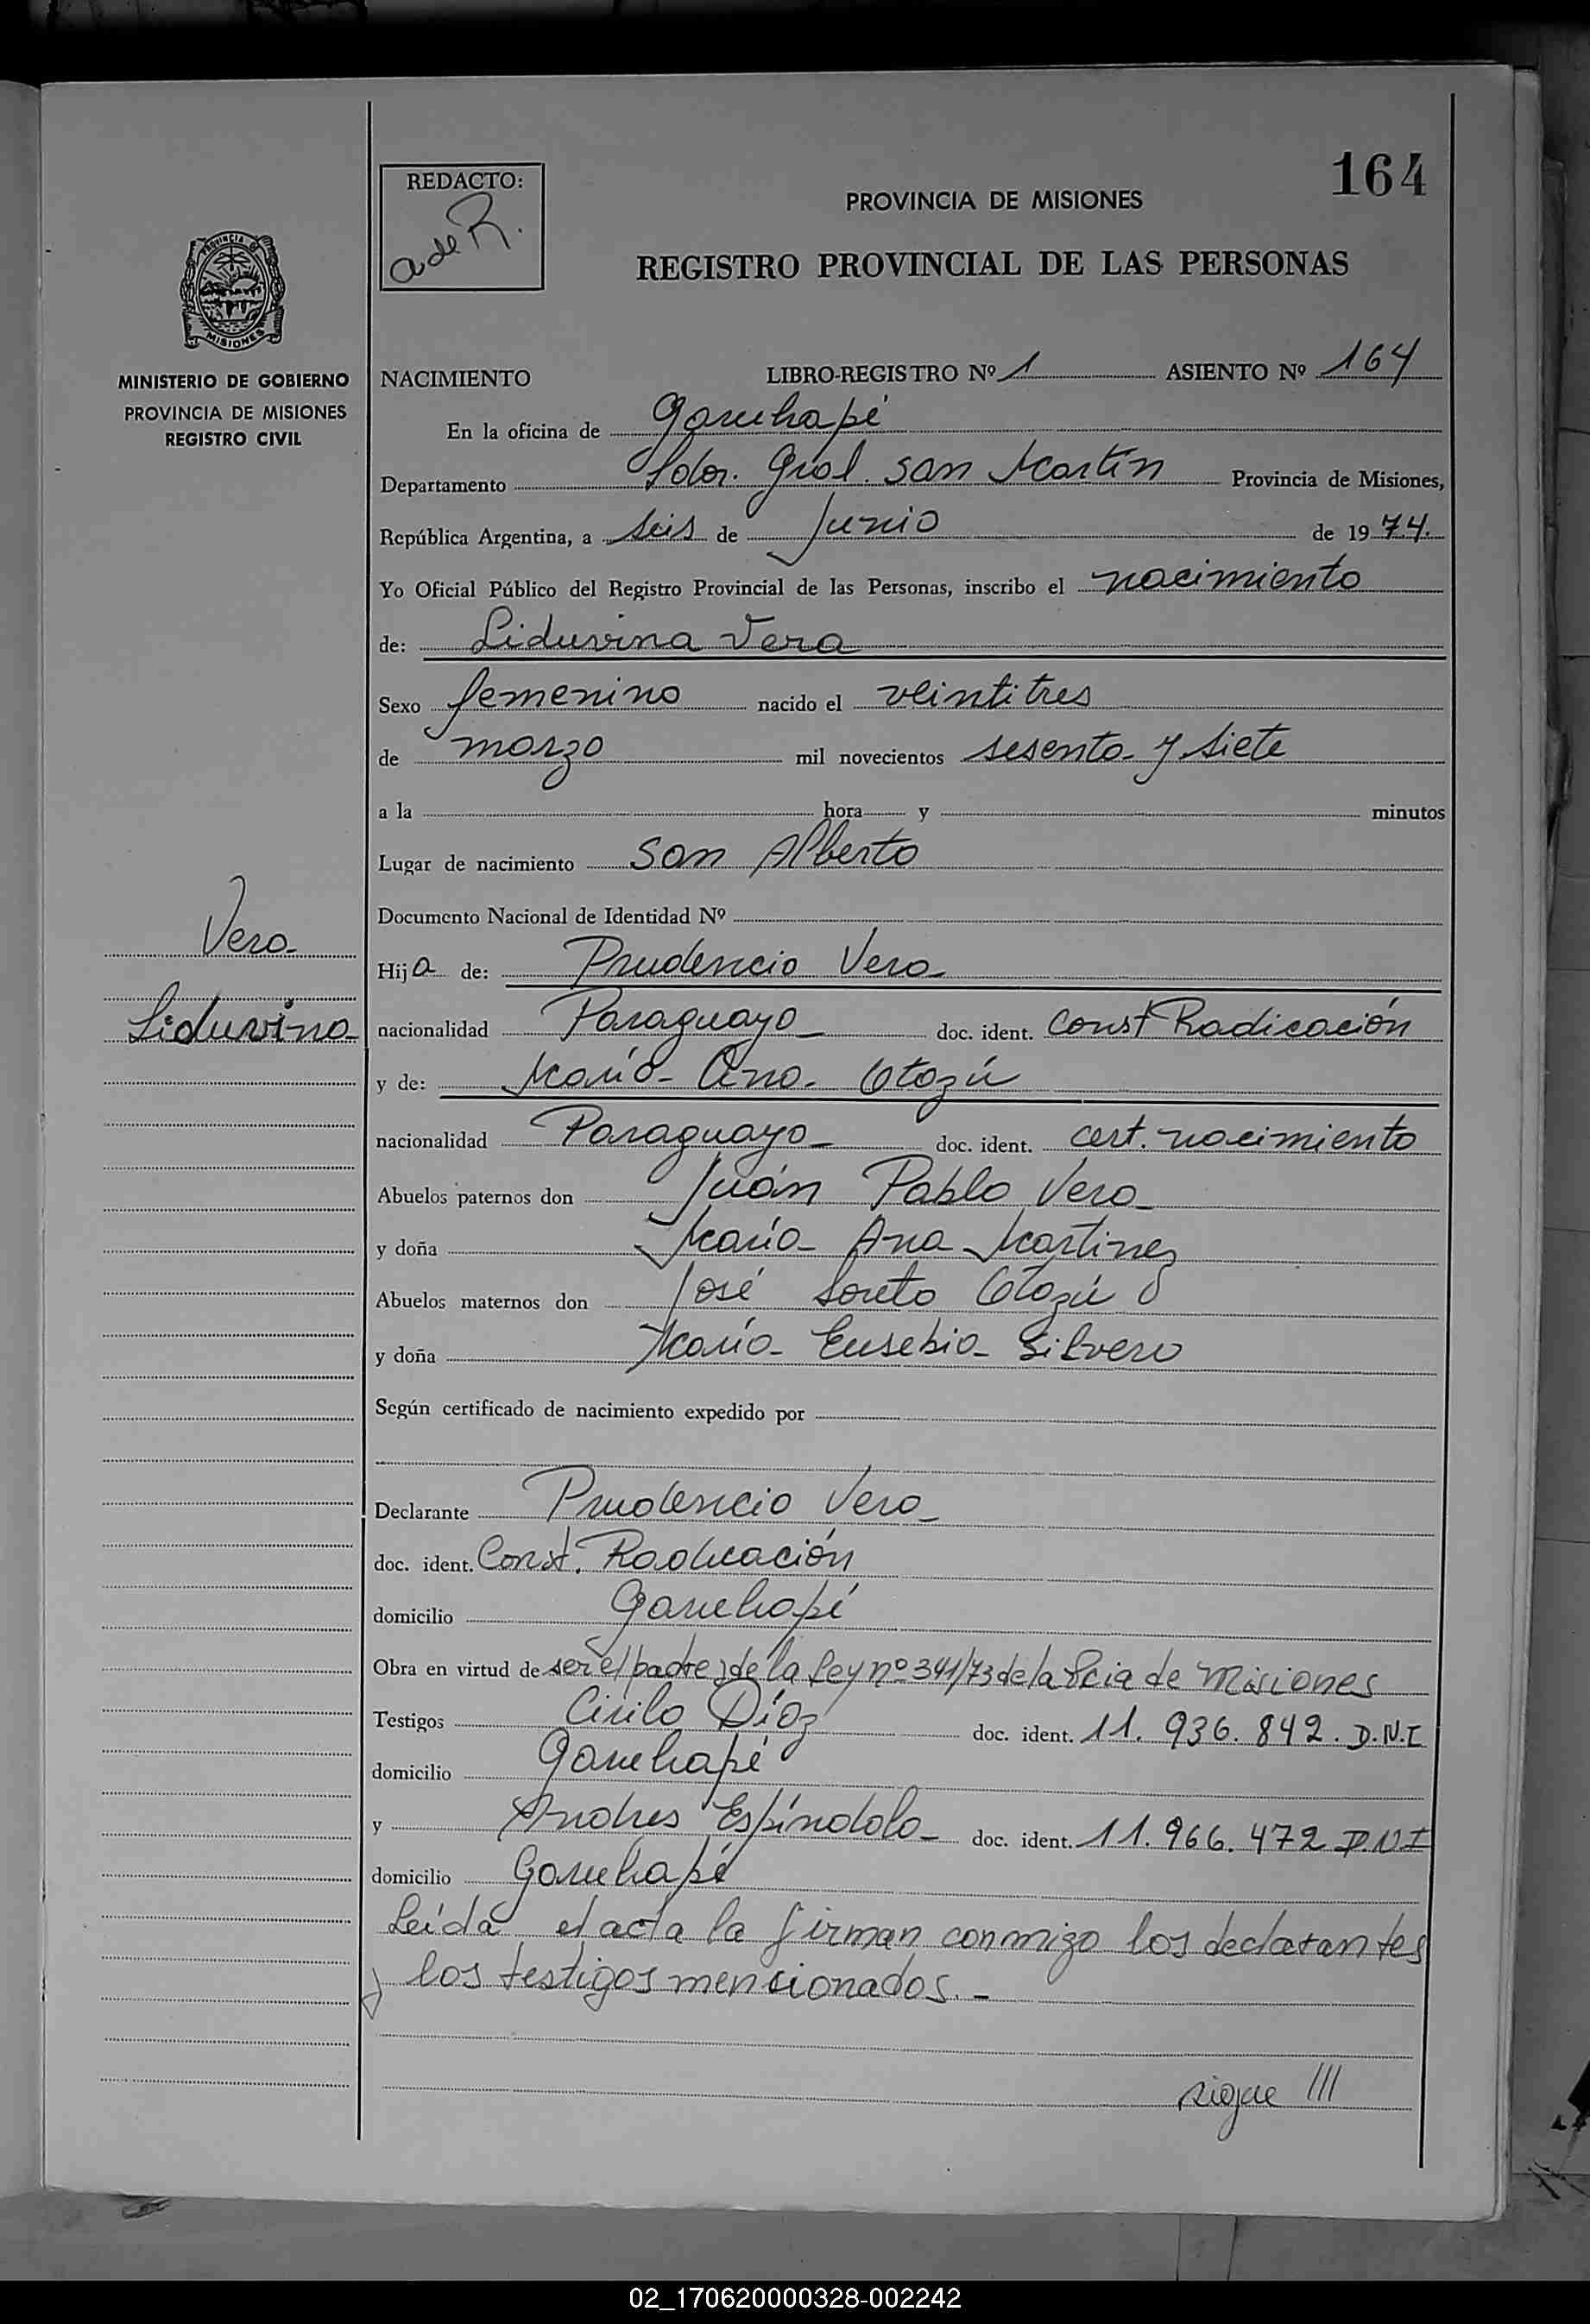 164
REDACTO:
a de R.
PROVINCIA DE MISIONES
REGISTRO PROVINCIAL DE LAS PERSONAS
PROVINCIA DE
MISIONES
MINISTERIO DE GOBIERNO
PROVINCIA DE MISIONES
REGISTRO CIVIL
NACIMIENTO LIBRO-REGISTRO Nº 1 ASIENTO Nº 164
En la oficina de Garuhapé
Departamento Ldor. Gral. San Martín Provincia de Misiones,
República Argentina, a seis de Junio de 1974.
Yo Oficial Público del Registro Provincial de las Personas, inscribo el nacimiento
de: Liduvina Vera
Sexo femenino nacido el veintitres
de marzo mil novecientos sesenta y siete
a la hora y minutos
Lugar de nacimiento San Alberto
Documento Nacional de Identidad Nº
Vera
Hija de: Prudencio Vera
Liduvina
nacionalidad Paraguaya doc. ident. Const Radicación
y de: María Ana Otazú
nacionalidad Paraguaya doc. ident. cert. nacimiento
Abuelos paternos don Juán Pablo Vera
y doña María Ana Martinez
Abuelos maternos don José Loreto Otazú
y doña María Eusebia Silvero
Según certificado de nacimiento expedido por
Declarante Prudencio Vera
doc. ident. Const. Radicación
domicilio Garuhapé
Obra en virtud de ser el padre y de la Ley nº 341/73 de la Pcia de Misiones
Testigos Cirilo Díaz doc. ident. 11.936.842. D.N.I
domicilio Garuhapé
y Andres Espíndola doc. ident. 11.966.472 D.N.I
domicilio Garuhapé
Leída el acta la firman conmigo los declarantes
y los testigos mencionados.-
sigue ///
02_170620000328-002242